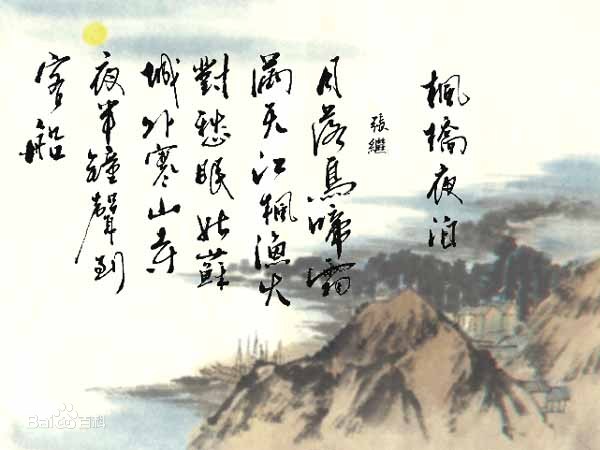 楓橋夜泊
張繼
月落烏啼霜
滿天江楓漁火
對愁眠姑蘇
城外寒山寺
夜半鐘聲到
客船
Bai百科